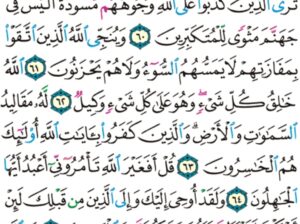 تَرَى ٱلَّذِينَ كَذَبُوا۟ عَلَى ٱللَّهِ وُجُوهُهُم مُّسْوَدَّةٌ أَلَيْسَ فِى
جَهَنَّمَ مَثْوًى لِّلْمُتَكَبِّرِينَ ٦٠ وَيُنَجِّى ٱللَّهُ ٱلَّذِينَ ٱتَّقَوْا۟
بِمَفَازَتِهِمْ لَا يَمَسُّهُمُ ٱلسُّوٓءُ وَلَا هُمْ يَحْزَنُونَ ٦١ ٱللَّهُ
خَٰلِقُ كُلِّ شَىْءٍ وَهُوَ عَلَىٰ كُلِّ شَىْءٍ وَكِيلٌ ٦٢ لَّهُۥ مَقَالِيدُ
ٱلسَّمَٰوَٰتِ وَٱلْأَرْضِ وَٱلَّذِينَ كَفَرُوا۟ بِـَٔايَٰتِ ٱللَّهِ أُو۟لَٰٓئِكَ
هُمُ ٱلْخَٰسِرُونَ ٦٣ قُلْ أَفَغَيْرَ ٱللَّهِ تَأْمُرُوٓنِّىٓ أَعْبُدُ أَيُّهَا
ٱلْجَٰهِلُونَ ٦٤ وَلَقَدْ أُوحِىَ إِلَيْكَ وَإِلَى ٱلَّذِينَ مِن قَبْلِكَ لَئِنْ